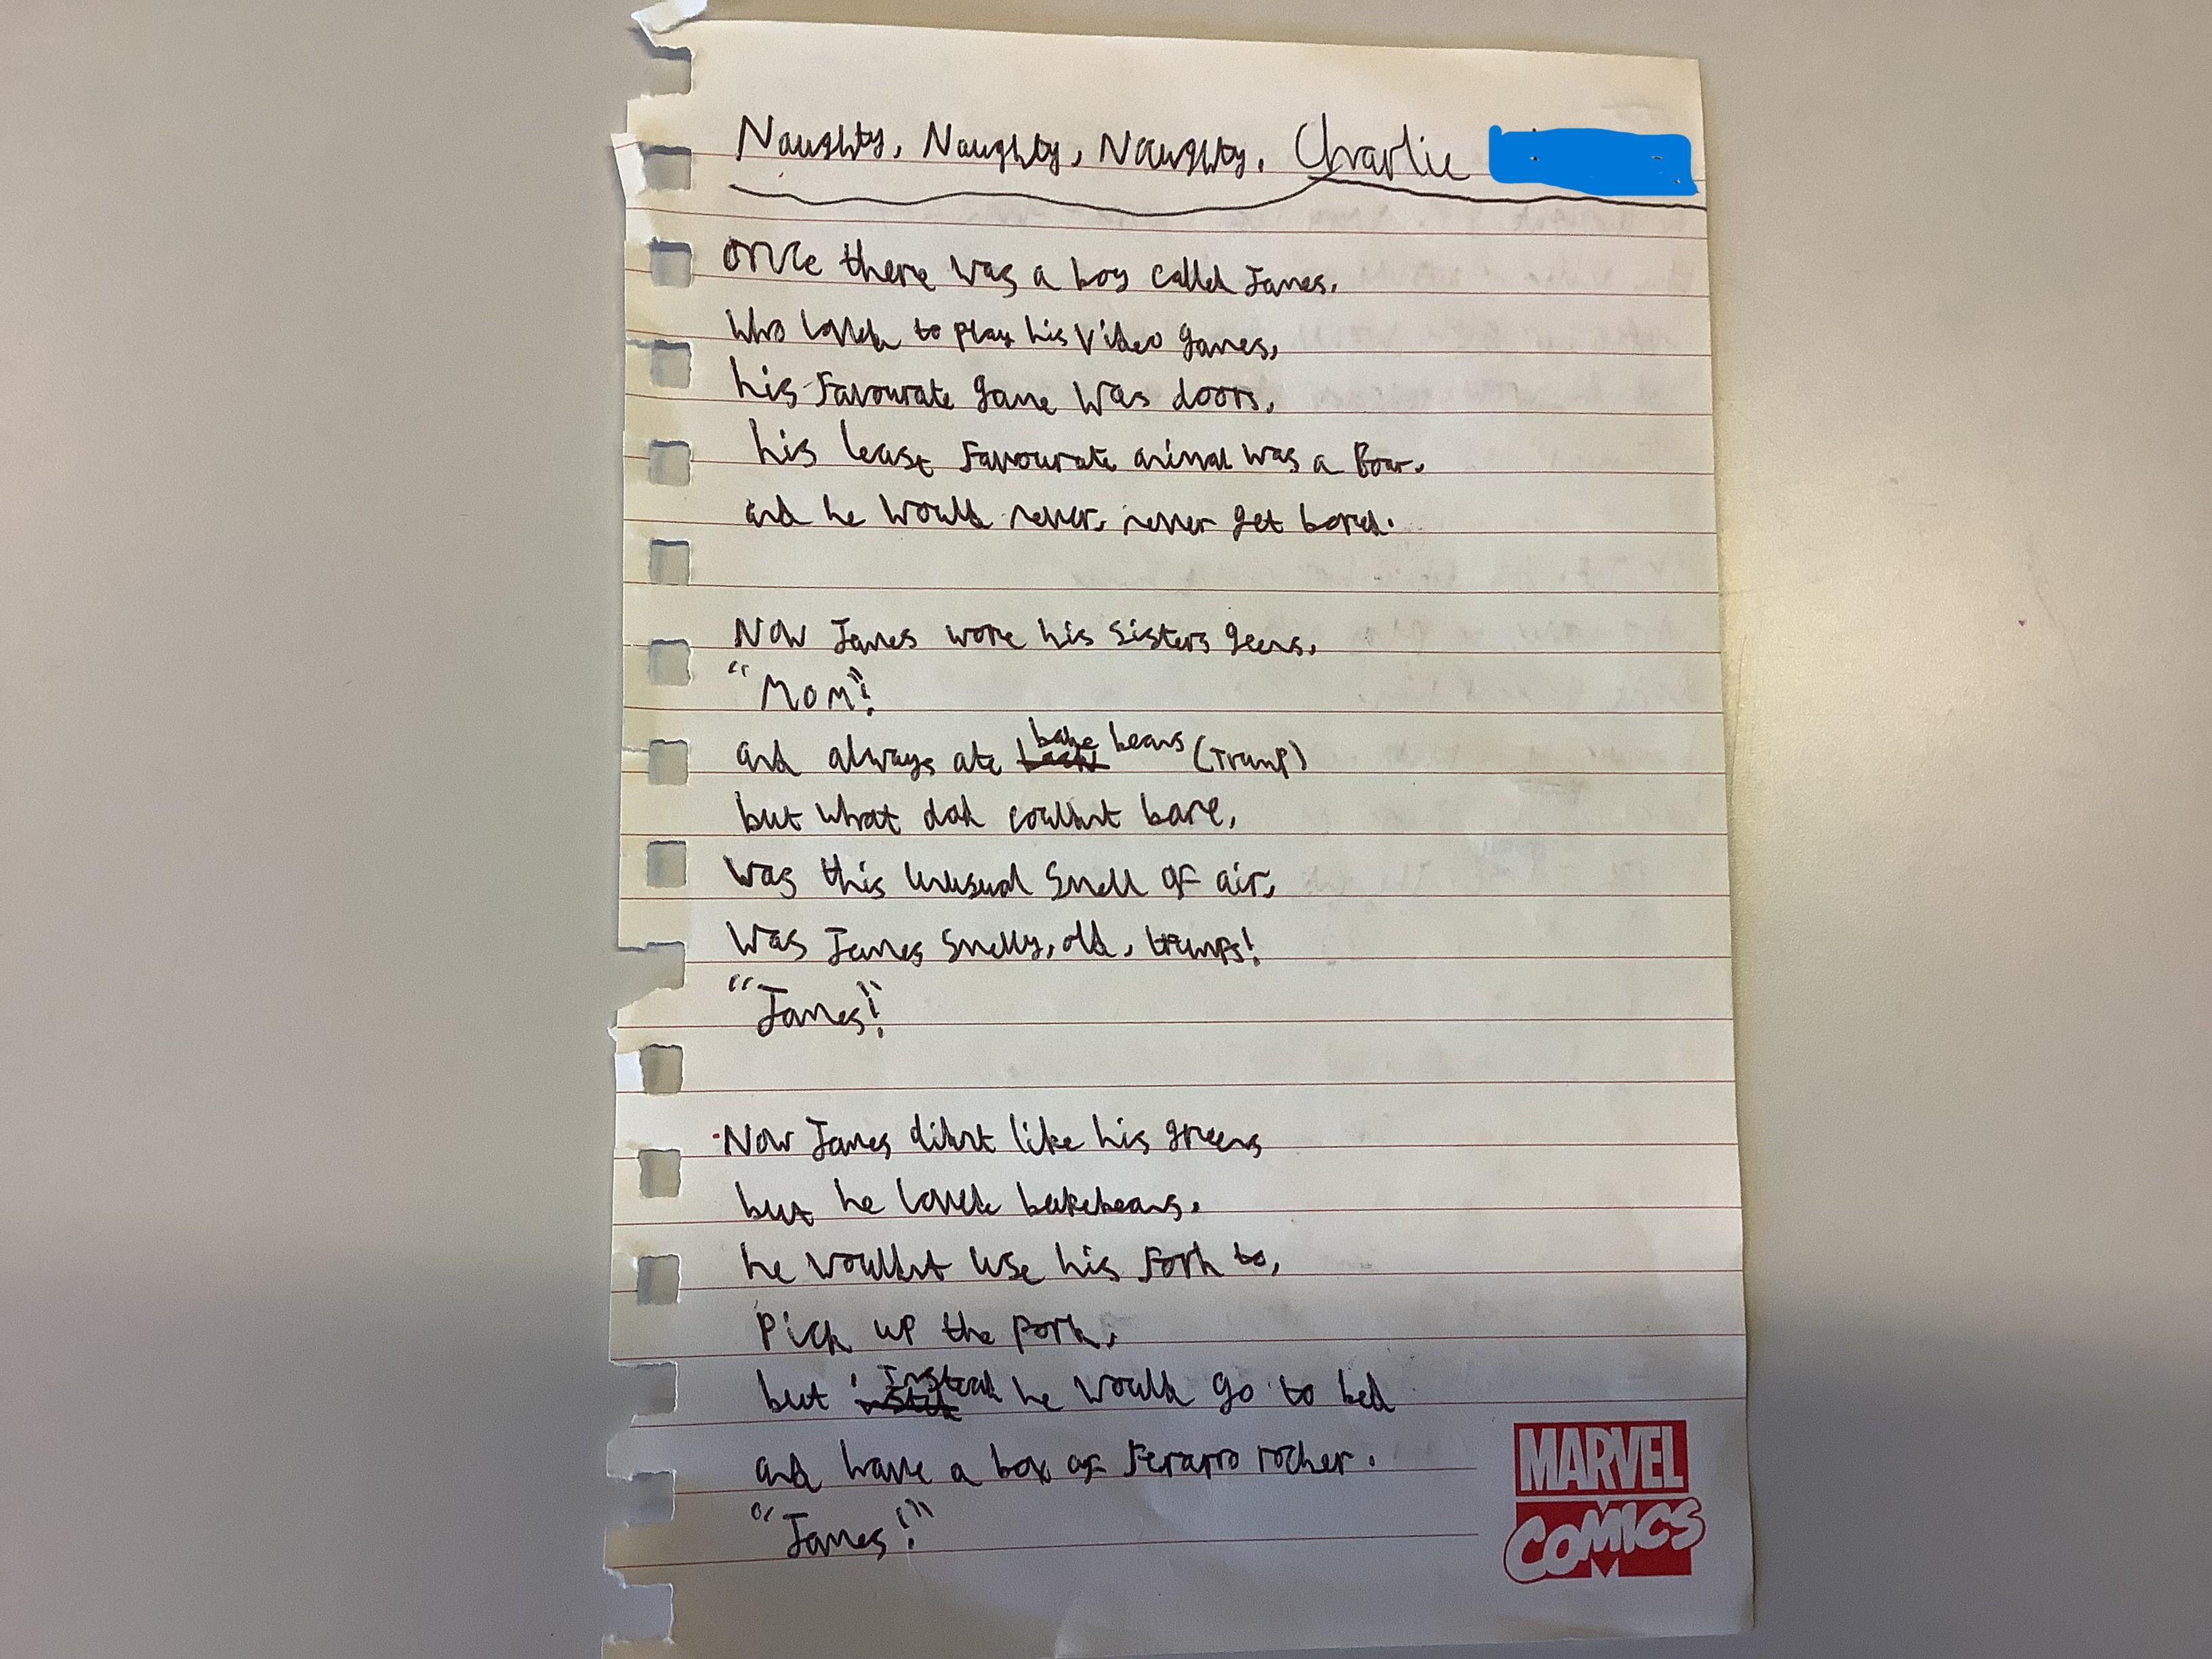 Naughty, Naughty, Naughty. Charlie
Once there was a boy called James.
Who loved to play his video games,
his favourate game was doors,
his least favourate animal was a Boar.
and he would never, never get bored.
Now James wore his sisters geens,
"Mom"!
and always ate bake beans (Trump)
but what dad couldnt bare,
was this unusual smell of air,
Was James smelly, old, trumps!
"James"!
Now James didnt like his greens
but he loved bakebeans.
he wouldnt use his fork to,
pick up the pork,
but instead he would go to bed
and have a box of ferarro rocher.
"James!"
MARVEL
COMICS